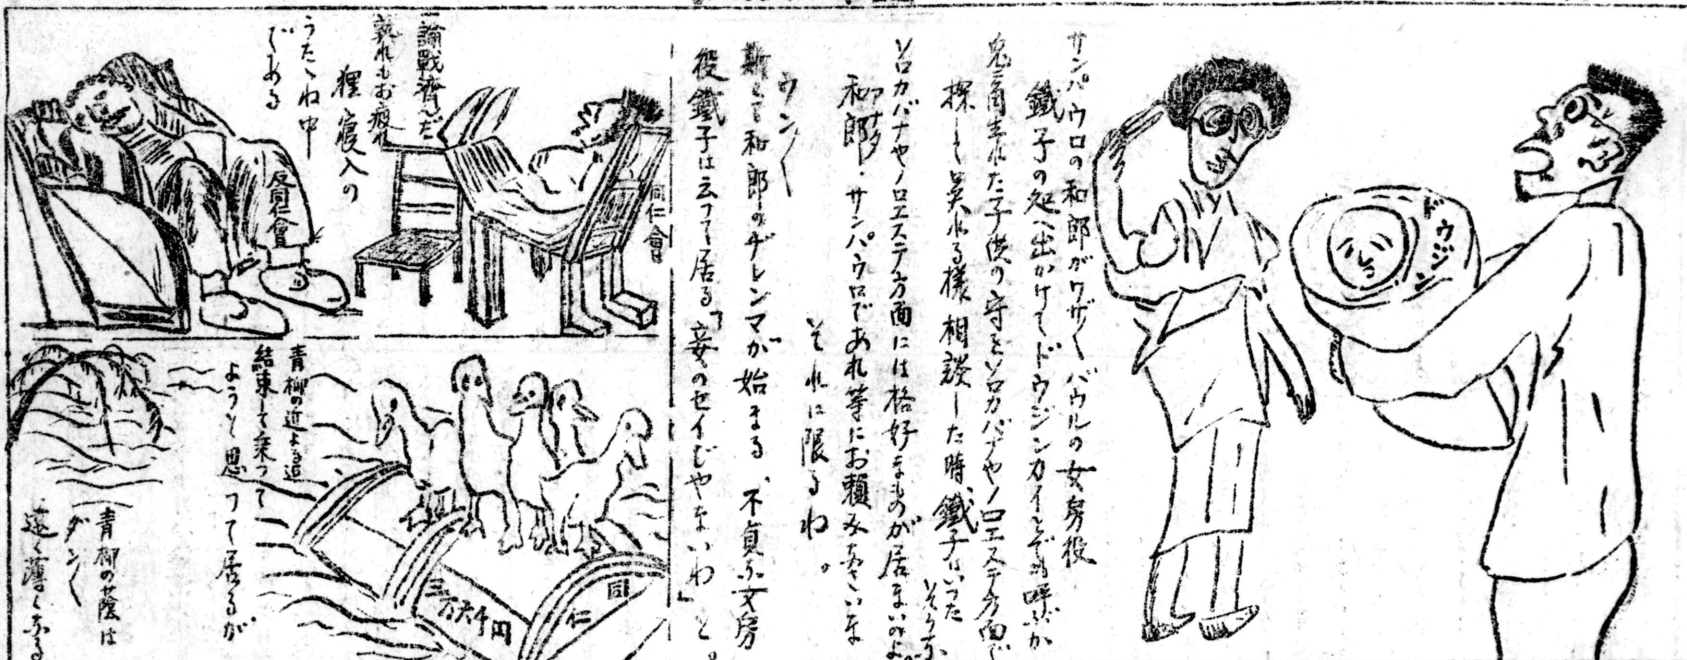 サンパウロの和郎がワザ〱バウルの女房役
鐵子の処へ出かけてドウジンカイとでも呼ぶか
鬼三角生れた子供の守をソロカバナやノロエステ方面で
探して呉れる様相談した時、鐵子はいつた
そうね
ソロカバナやノロエステ方面には格好なものが居ないのよ。
和郎、サンパウロであれ等にお頼みなさいな
それに限るね。
ウン〱
斯くて和郎のヂレンマが始まる、不貞な女房
役鐵子は云つて居る「妾のセイじやないわ」と。
ドウジン
一論戰濟んだ
孰れもお疲れ
狸寝入の
うたゝね中
である
同仁會
反同仁會
青柳の近よる迄
結束して乗つて
ようと思つて居るが
青柳の蔭は
ダン〱
遠く薄くなる
三万六千円
同仁